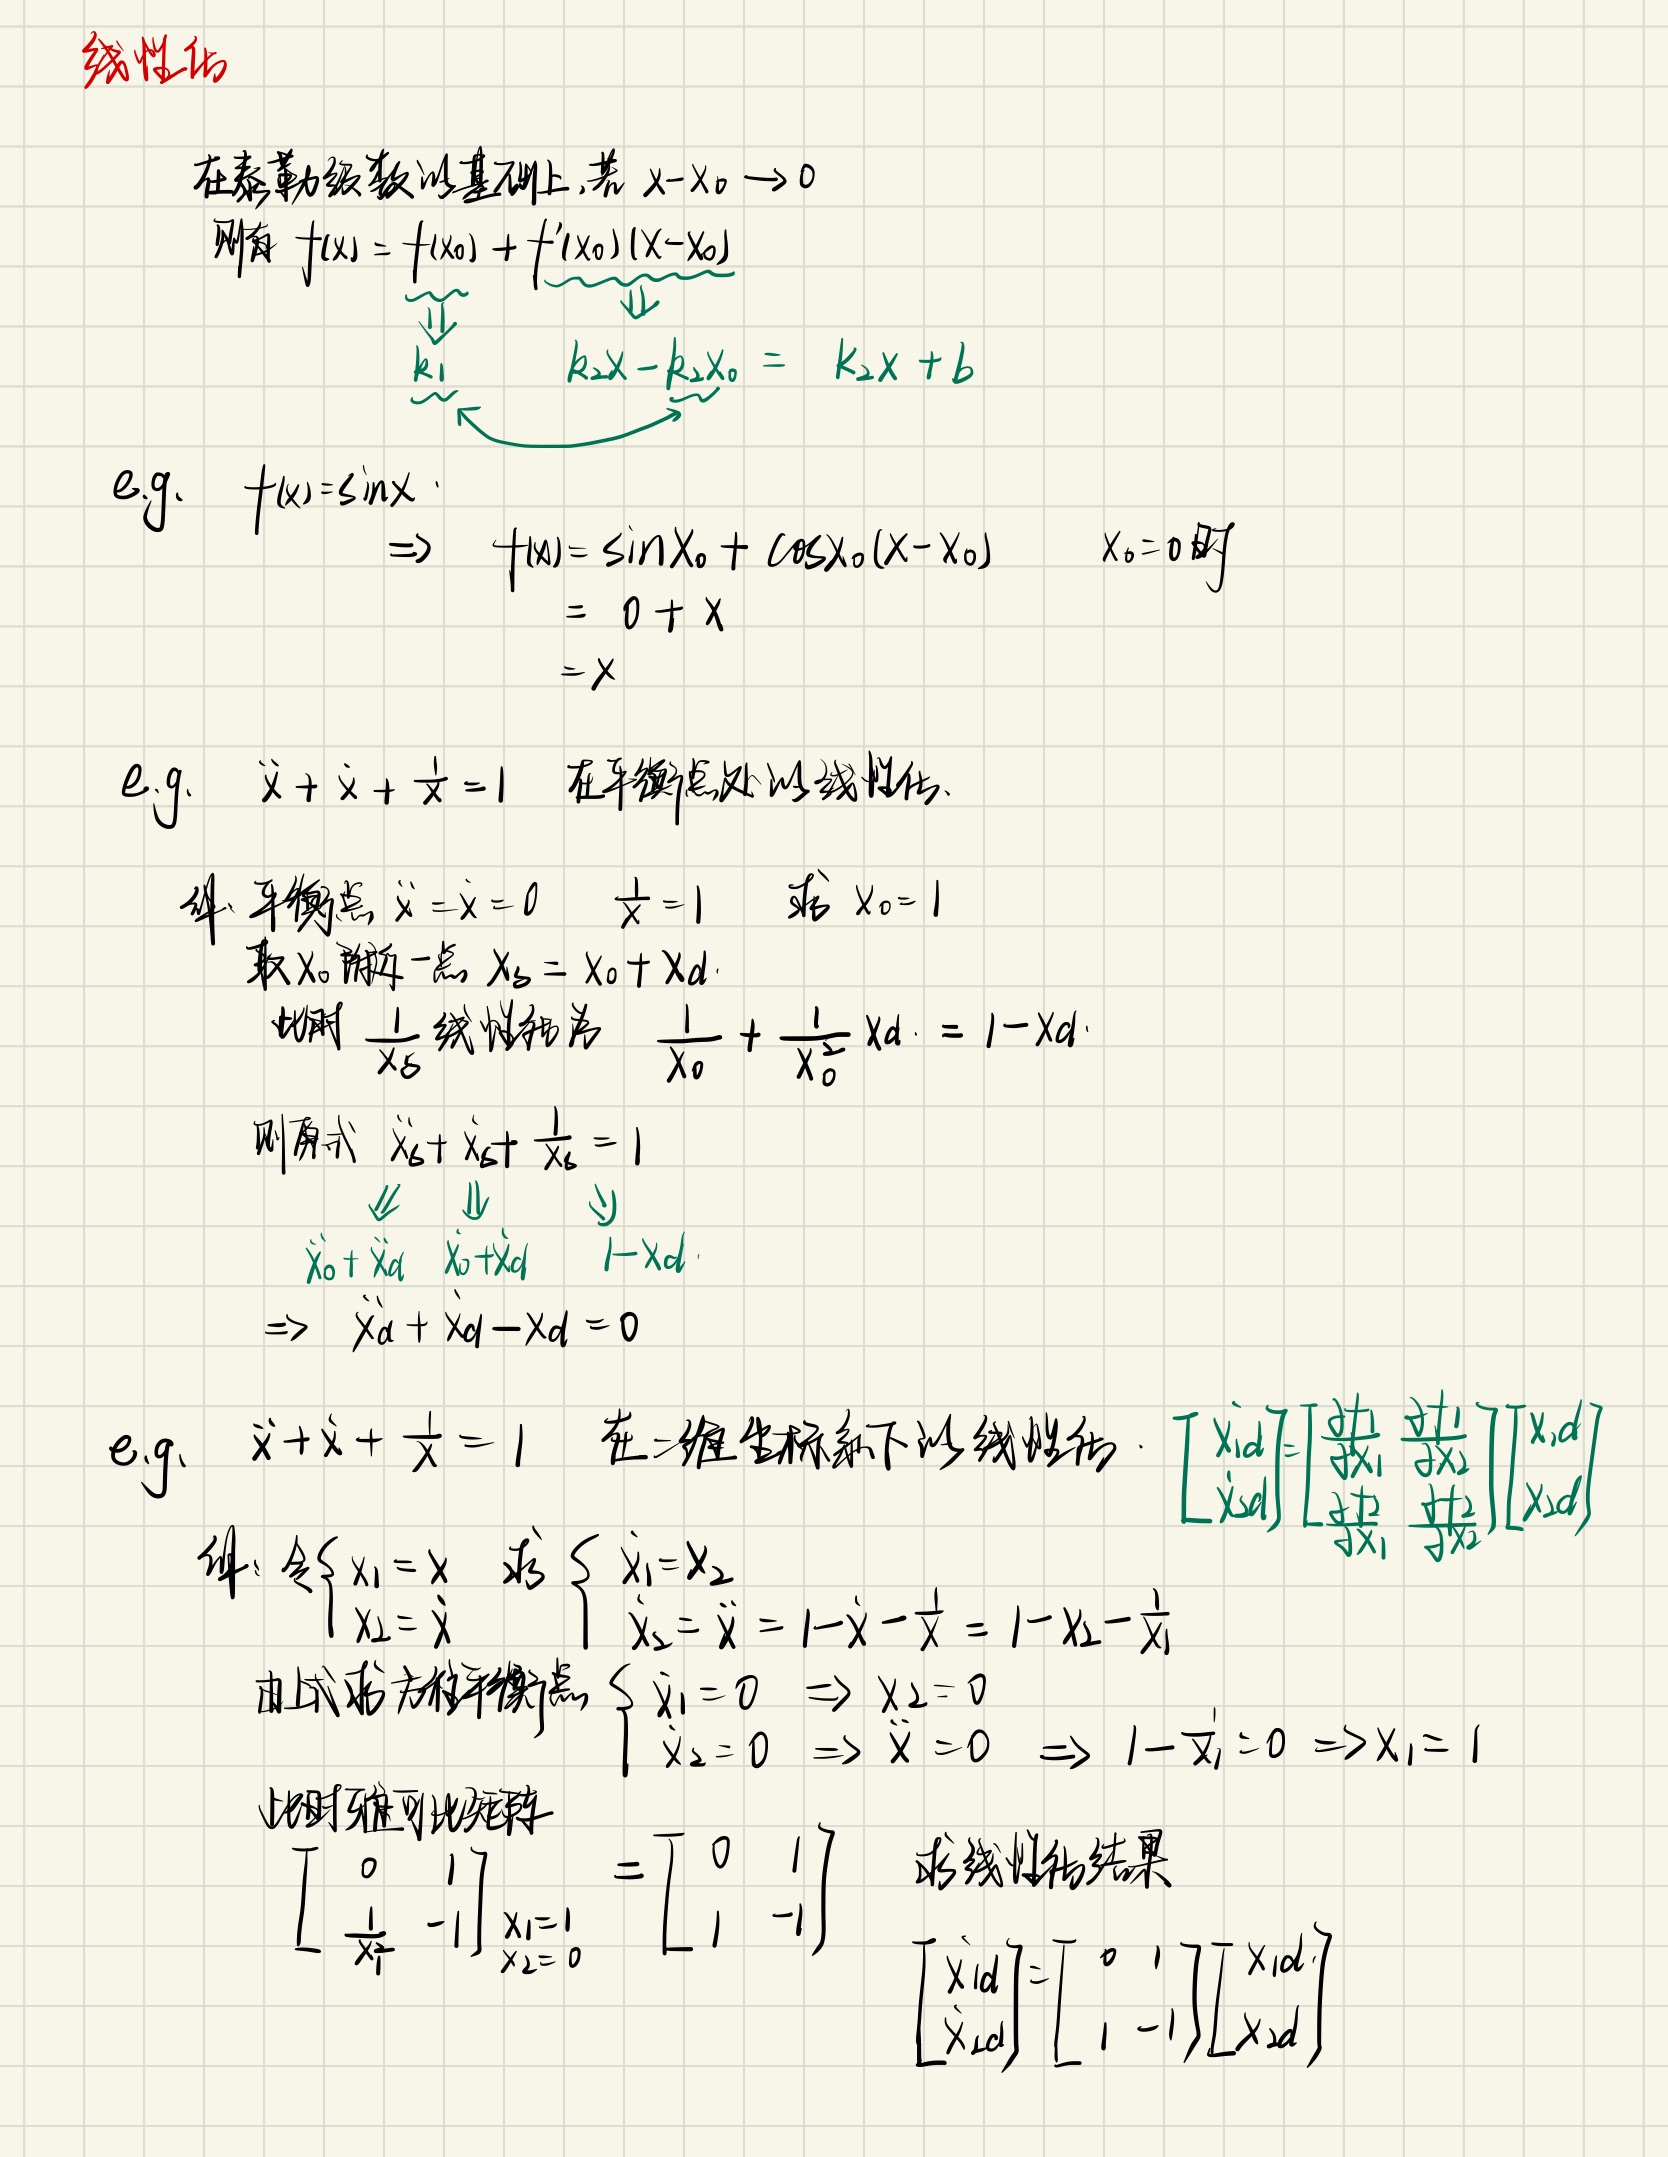 线性化
在泰勒级数的基础上,若 x-x₀→0
则有 f(x) = f(x₀) + f'(x₀)(x-x₀)
⇓ ⇓
k₁ k₂x-k₂x₀ = k₂x+b
e.g. f(x)=sinx.
⇒ f(x)= sinx₀ + cosx₀(x-x₀) x₀=0时
= 0 + x
= x
e.g. ẍ + ẋ + 1/x = 1 在平衡点处的线性化.
解: 平衡点 ẍ = ẋ = 0 1/x = 1 求得 x₀=1
取x₀附近一点 x_δ = x₀ + x_d.
此时 1/x_δ 线性化为 1/x₀ + 1/x₀² x_d. = 1-x_d.
则原式 ẍ_δ + ẋ_δ + 1/x_δ = 1
⇓ ⇓ ⇓
ẍ₀+ẍ_d ẋ₀+ẋ_d 1-x_d.
⇒ ẍ_d + ẋ_d - x_d = 0
e.g. ẍ + ẋ + 1/x = 1 在二维坐标系下的线性化. [ẋ₁d; ẋ₂d] = [∂f₁/∂x₁ ∂f₁/∂x₂; ∂f₂/∂x₁ ∂f₂/∂x₂] [x₁d; x₂d]
解: 令 { x₁ = x 求得 { ẋ₁ = x₂
x₂ = ẋ ẋ₂ = ẍ = 1-ẋ-1/x = 1-x₂-1/x₁
由上式求方程平衡点 { ẋ₁ = 0 ⇒ x₂ = 0
ẋ₂ = 0 ⇒ ẍ = 0 ⇒ 1-1/x₁ = 0 ⇒ x₁ = 1
此时雅可比矩阵
[0 1; 1/x₁² -1] x₁=1 x₂=0 = [0 1; 1 -1] 求得线性化结果
[ẋ₁d; ẋ₂d] = [0 1; 1 -1] [x₁d; x₂d]